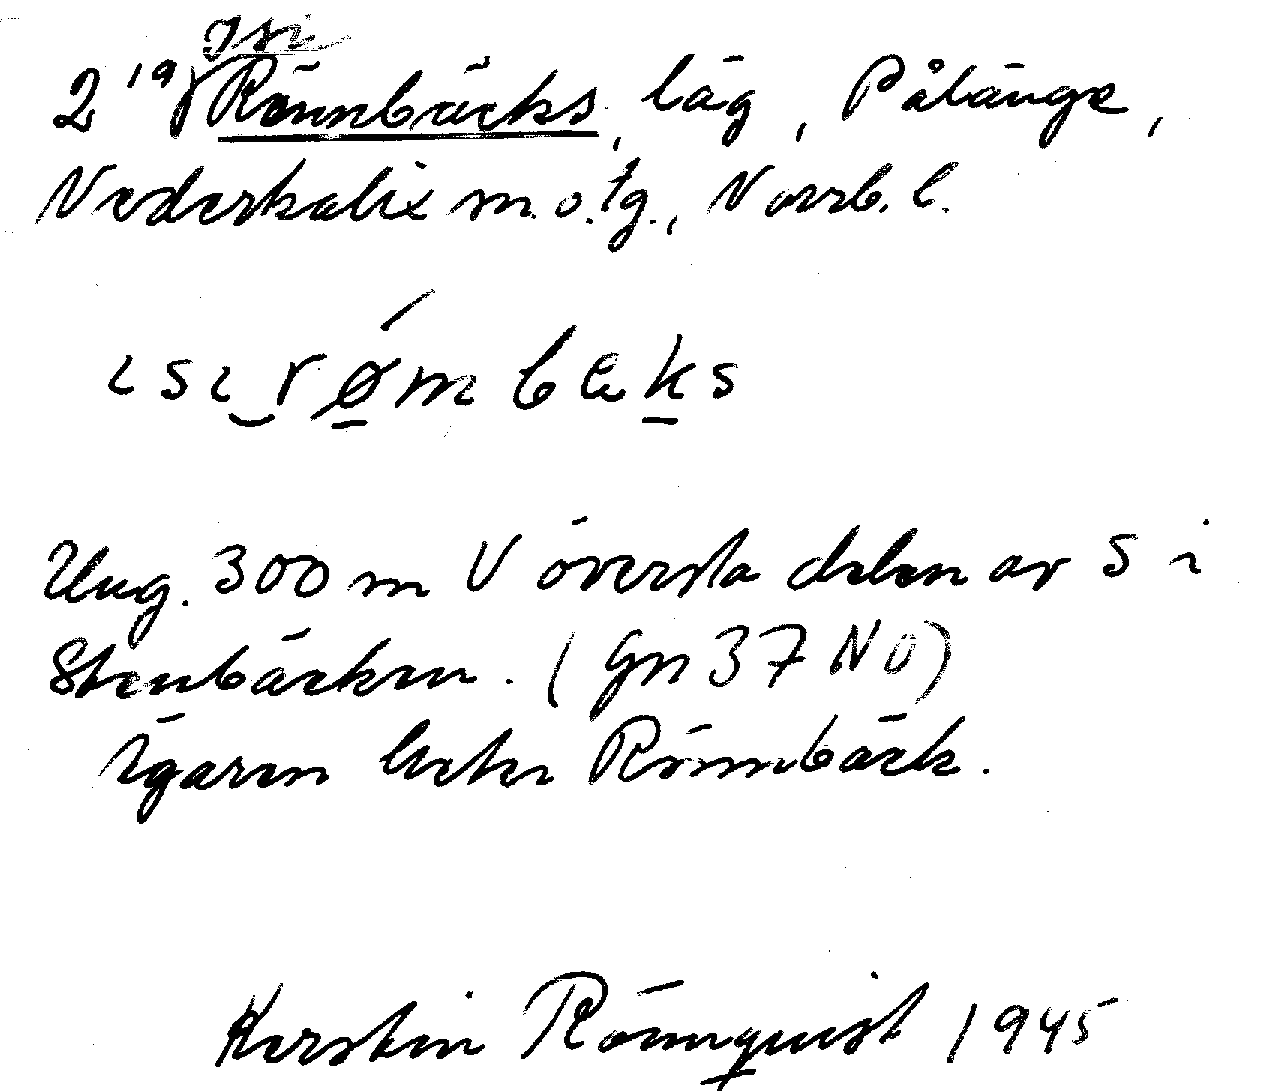 Isi
2¹⁹ Rönnbäcks, läg, Pålänge,
Nederkalix sn o. tg., Norrb. l.
ısı‿rømbæks
Ung. 300 m V översta delen av S i
Stenbäcken. (Gn 37 NÖ)
Ägaren heter Rönnbäck.
Kerstin Rönnquist 1945